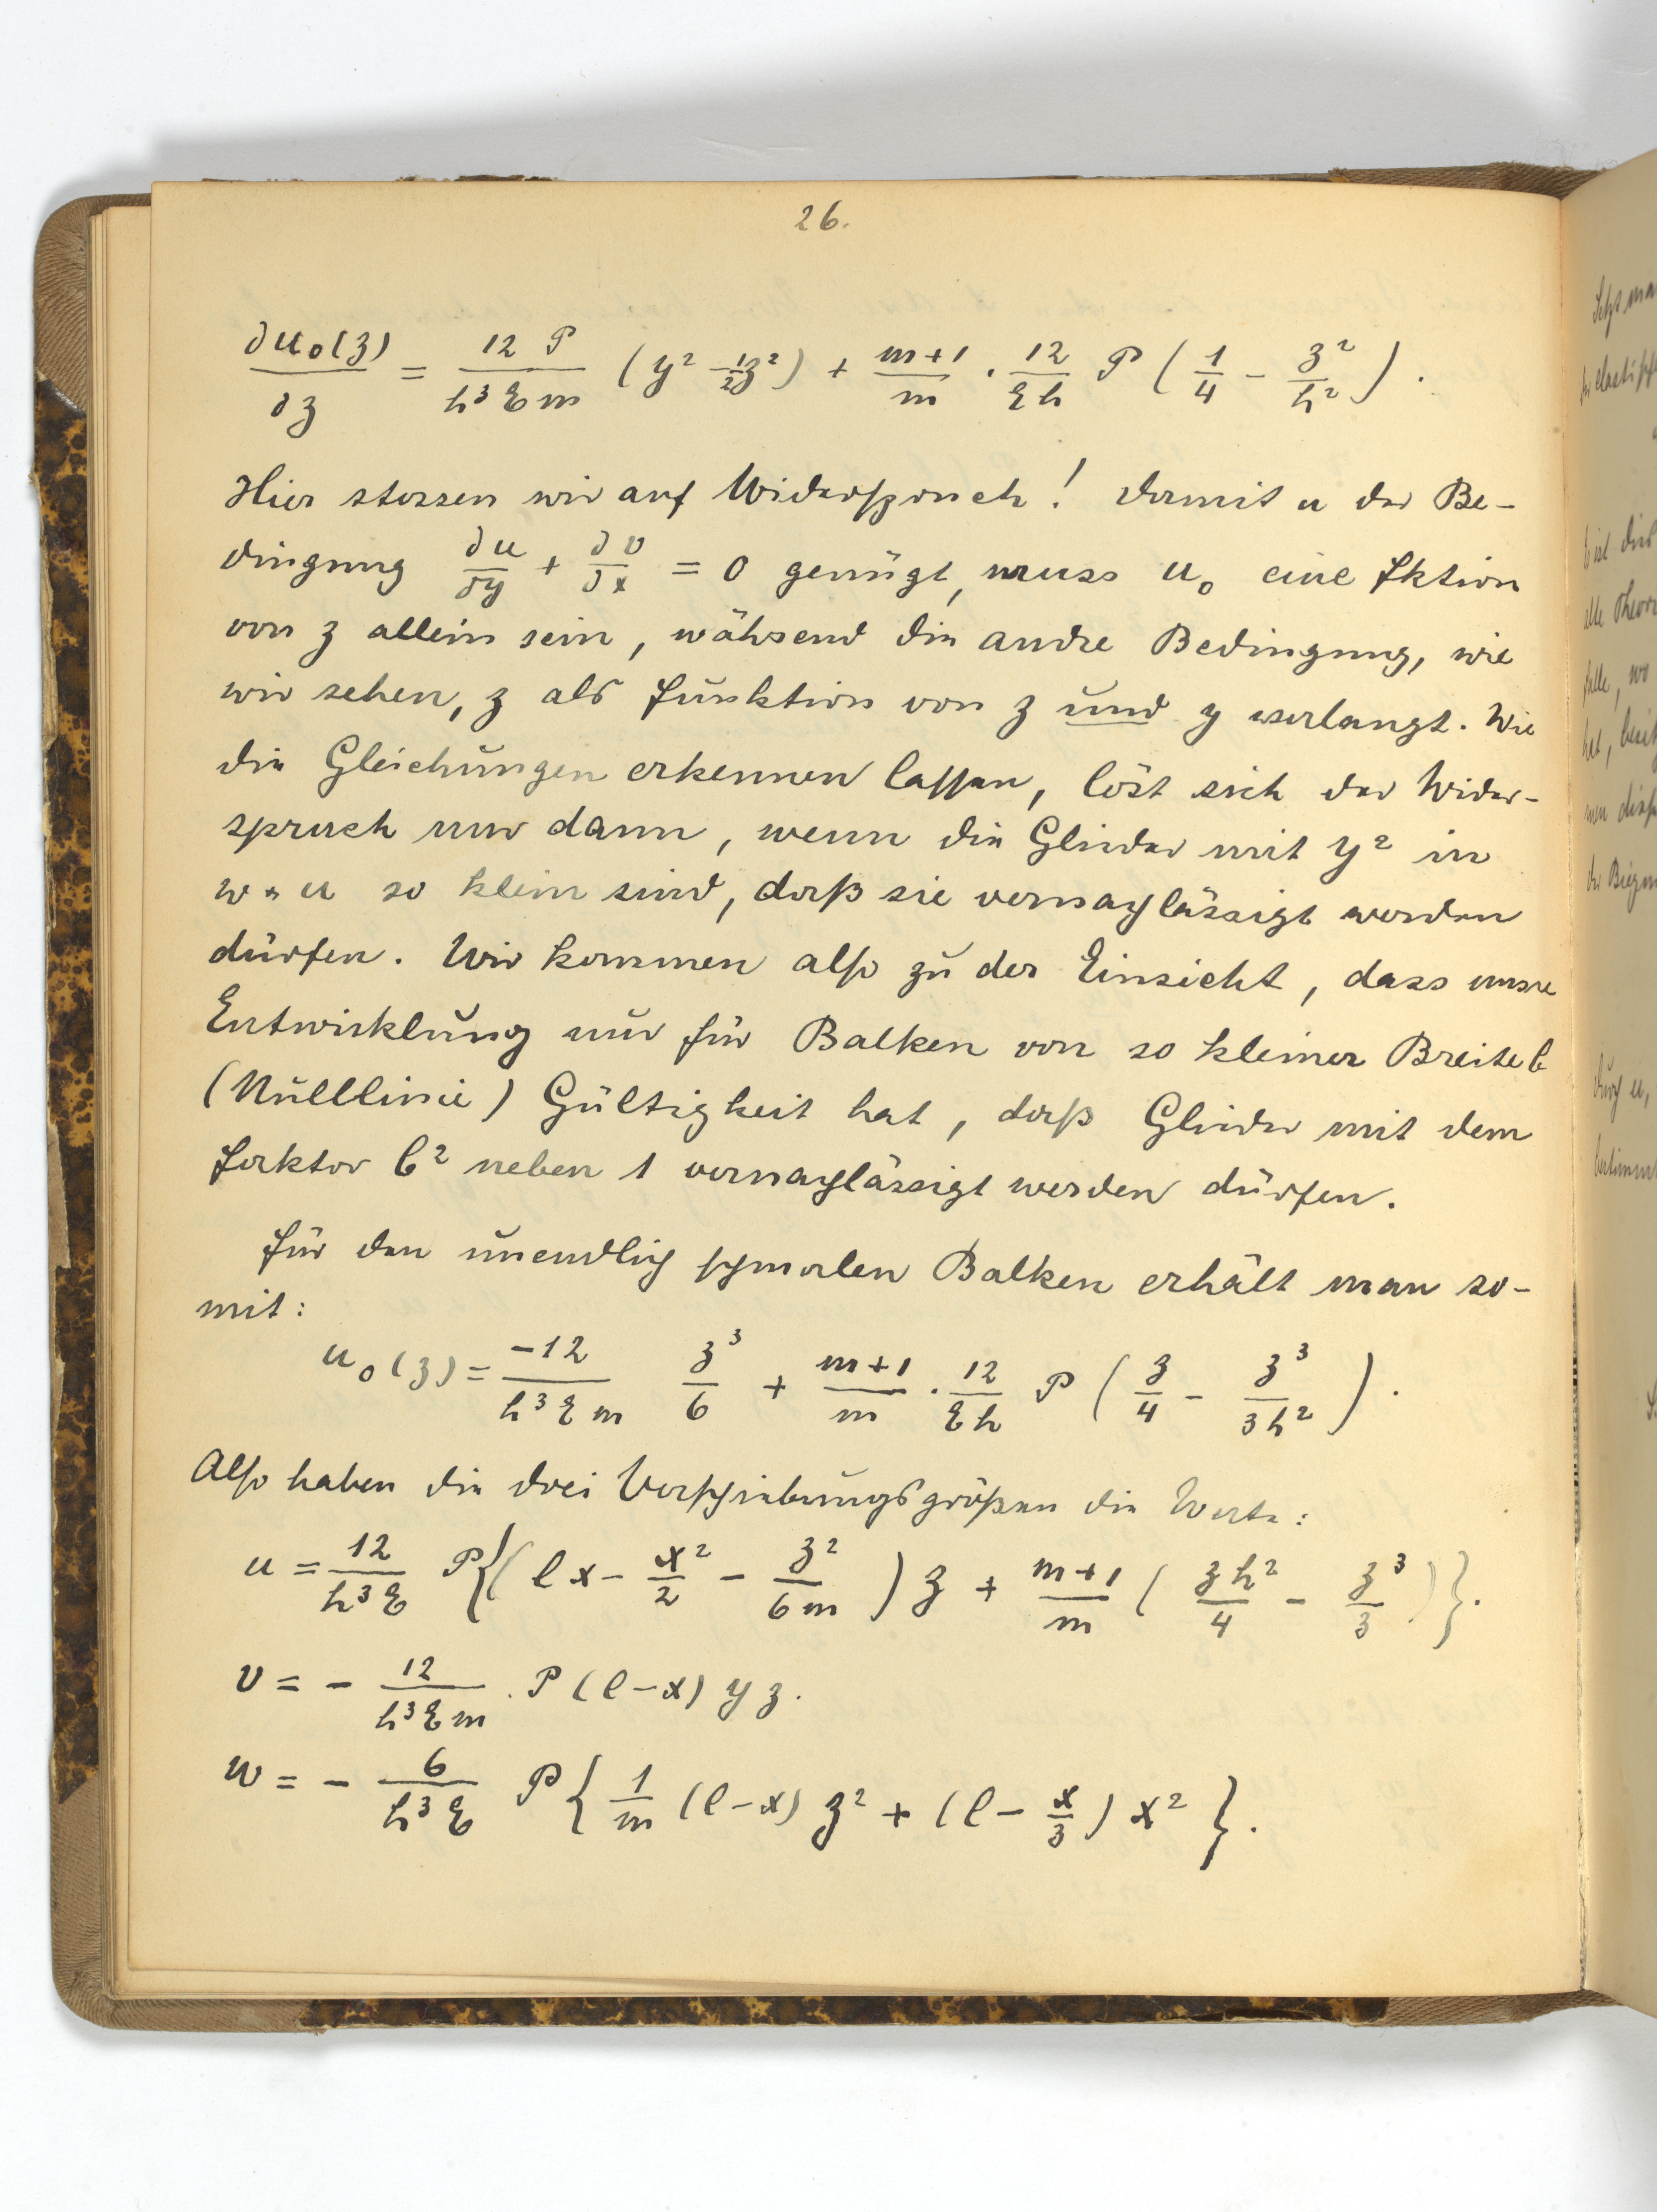 26.
∂u₀(z)/∂z = 12 P/h³Em (y² - ½z²) + m+1/m · 12/Eh P (1/4 - z²/h²).
Hier stossen wir auf Widerspruch! Damit u der Be-
dingung ∂u/∂y + ∂v/∂x = 0 genügt, muss u₀ eine Fktion
von z allein sein, während die andre Bedingung, wie
wir sehen, z als Funktion von z und y verlangt. Wie
die Gleichungen erkennen lassen, löst sich der Wider-
spruch nur dann, wenn die Glieder mit y² in
w u so klein sind, daß sie vernachlässigt werden
dürfen. Wir kommen also zu der Einsicht, dass unsre
Entwicklung nur für Balken von so kleiner Breite b
(Nulllinie) Gültigkeit hat, daß Glieder mit dem
Faktor b² neben 1 vernachlässigt werden dürfen.
Für den unendlich schmalen Balken erhält man so-
mit:
u₀(z) = -12/h³Em z³/6 + m+1/m · 12/Eh P (z/4 - z³/3h²).
Also haben die drei Verschiebungsgrößen die Werte:
u = 12/h³E P{(lx - x²/2 - z²/6m) z + m+1/m (zh²/4 - z³/3)}.
v = - 12/h³Em · P (l-x) y z.
w = - 6/h³E P{1/m (l-x) z² + (l - x/3) x²}.